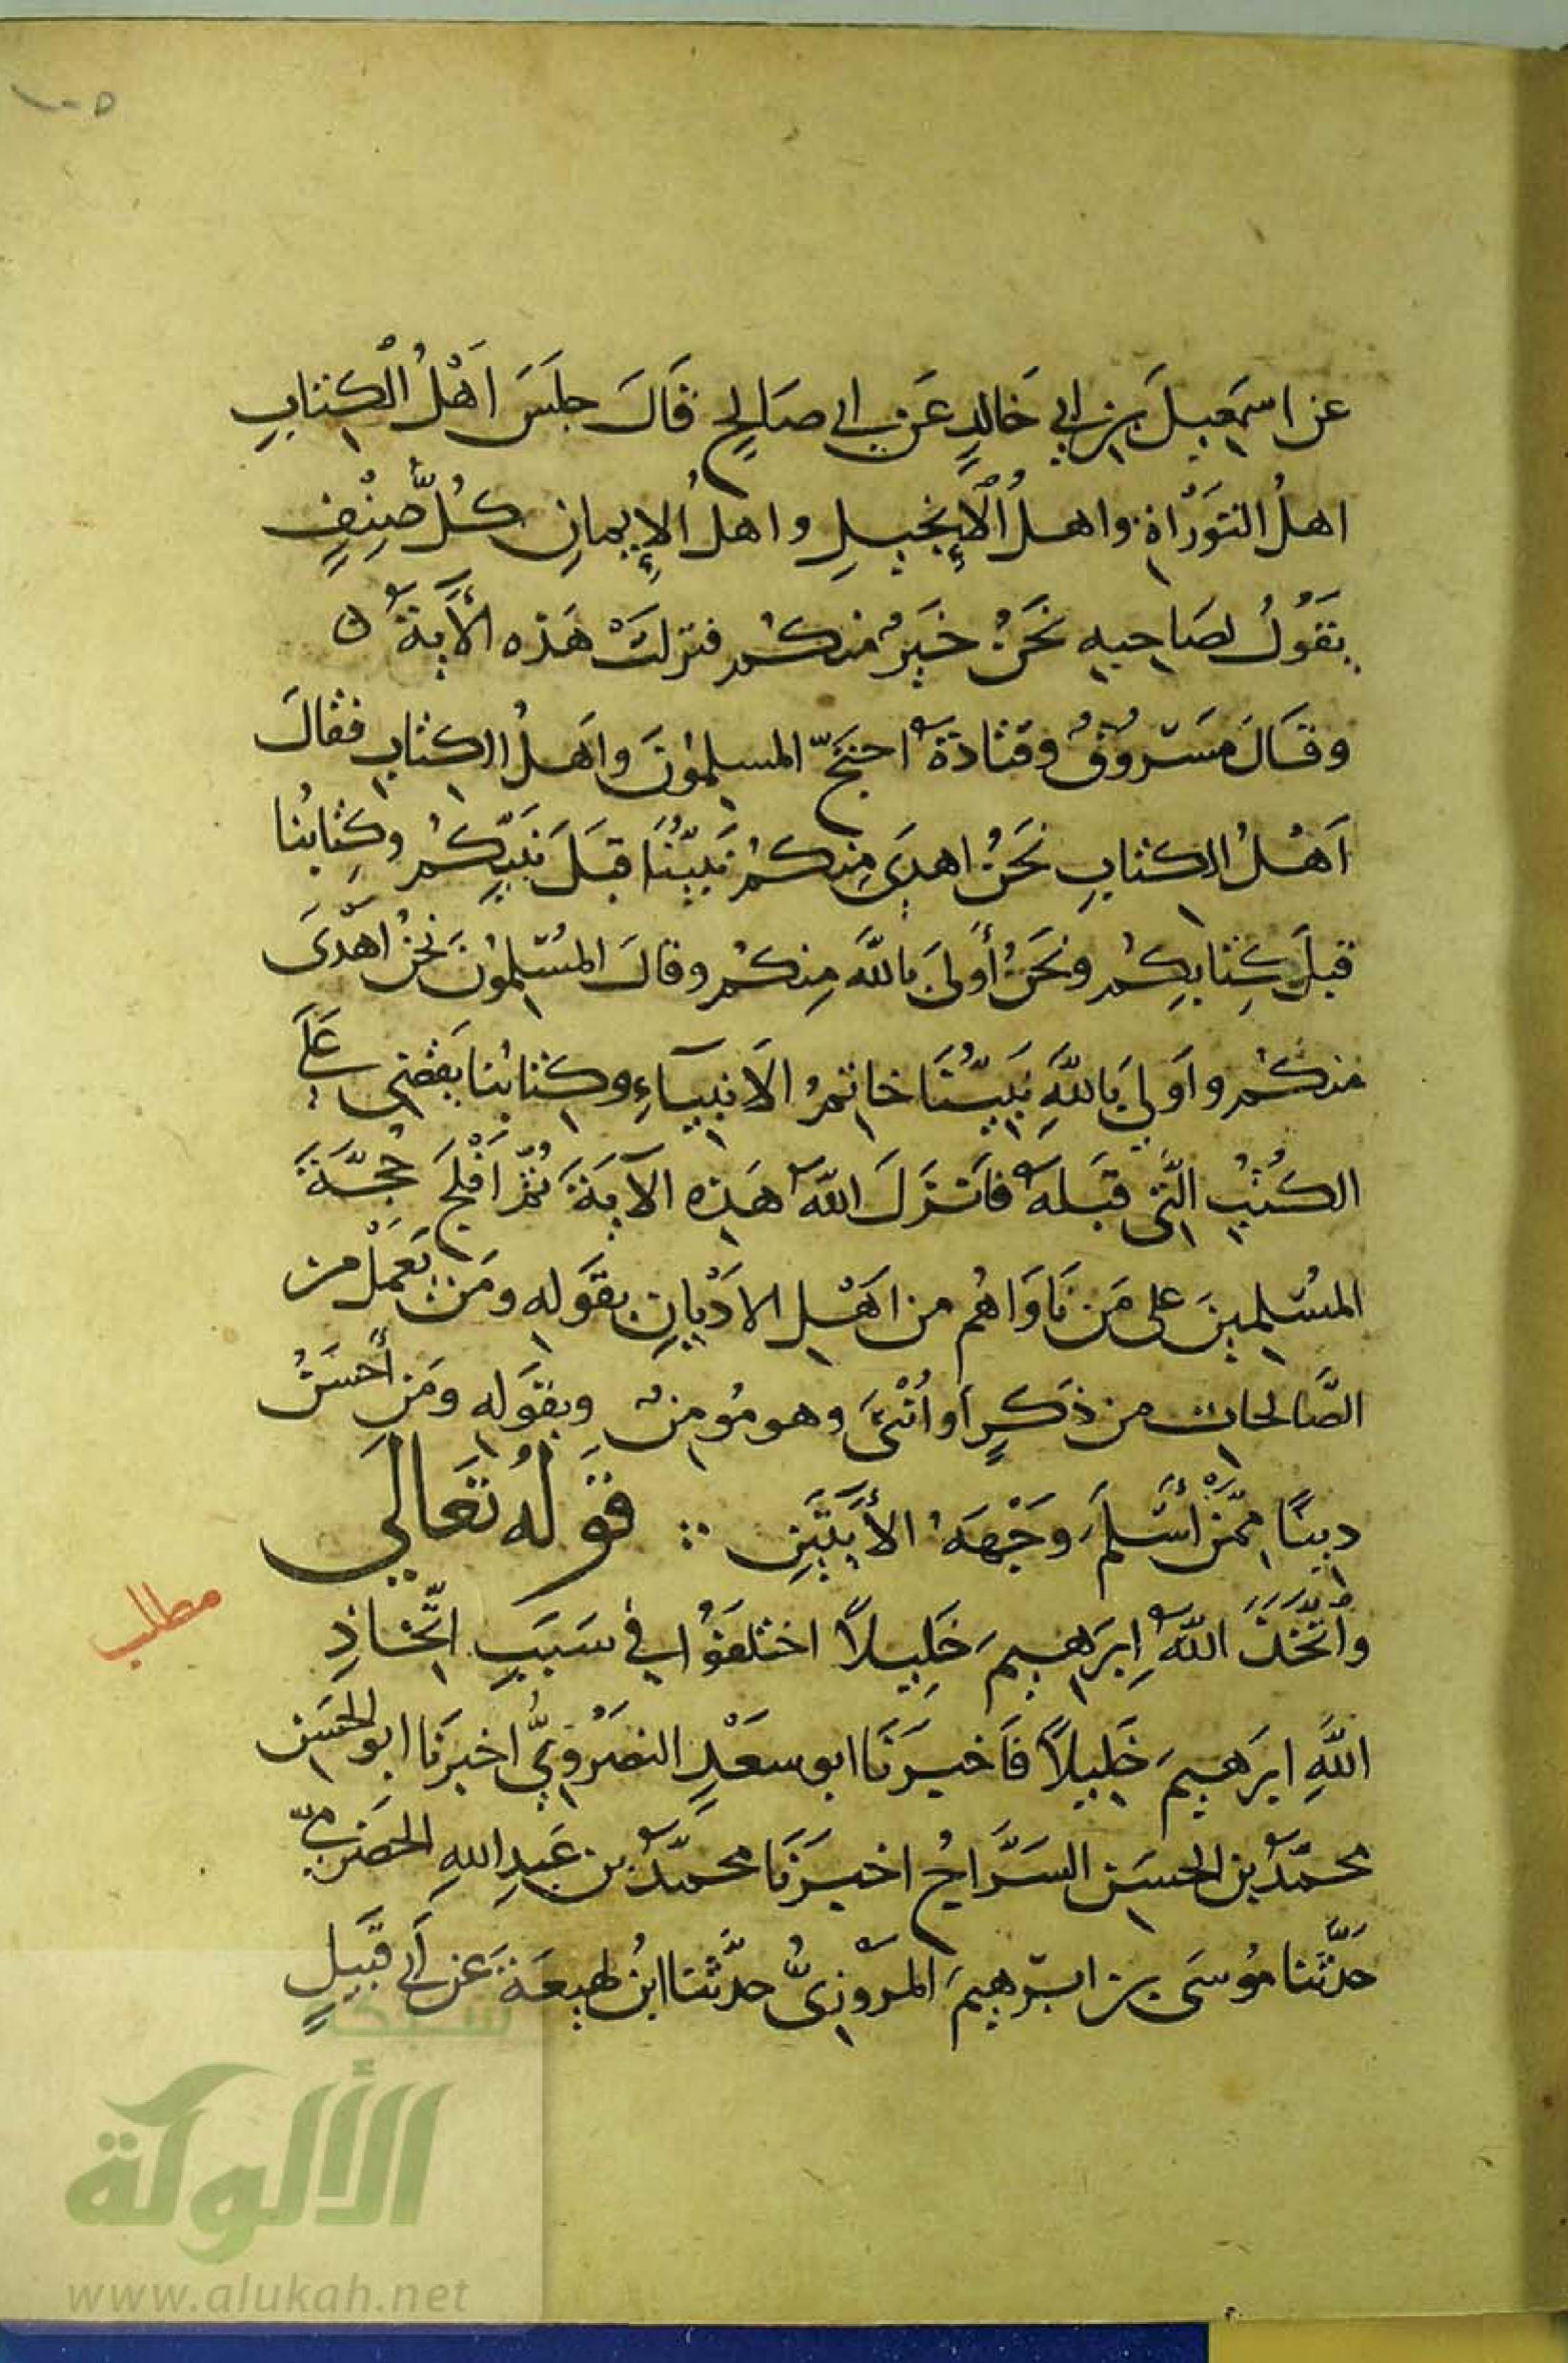 ١٠٥
عن اسمَعِيلَ بن ابي خالدٍ عَن ابي صَالِحٍ قَالَ جلَسَ اَهْلُ الْكِتابِ
اهلُ التوَرْاةِ واهلُ الْإِنجيلِ واهلُ الإِيمانِ كُلُّ صِنْفٍ
يَقُولُ لصَاحبِهِ نَحنُ خَيرٌ منكم فنزلتْ هَذه الْأَيةُ ه
وقَالَ مَسْروقٌ وقتادَةُ احتجّ المسلمُونَ واهلُ الكتابِ فقالَ
اَهْلُ الكتابِ نَحنُ اهدَى مِنكُمْ نَبيُّنَا قبَلَ نَبيِّكُمْ وكِتابُنا
قبلَ كِتابِكُم ونَحنُ أَولَى بالله مِنكُم وقالَ المُسْلمُونَ نَحنُ اَهْدَى
منكُم واَولَى بِاللهِ نَبيُّنَا خاتمُ الاَنبيَآءِ وكِتابُنا يَقضِي عَلَى
الكُتُبِ الّتِي قبَلهُ فاَنزَلَ اللهُ هَذِه الآيَةَ ثُمّ اَفْلَجَ حُجَّةَ
المُسْلِمينَ على مَن نَاوَاهُم من اهْلِ الاَدْيانِ بقَوله ومَن يَعْمَلْ من
الصَّالحات من ذَكرٍ اَو اُنْثَى وهو مُومنٌ وبقَوله ومَن أَحسَنُ
دِينًا مِمَّنْ أَسْلَمَ وَجْهَهُ الأَيَتَيَنِ ∴ قَوْلُهُ تَعَالَى
واتّخَذَ اللهُ اِبرَهِيمَ خَلِيلاً اختلفُوا في سَبَبِ اتّخاذِ
مطلب
اللهِ ابرَهِيمَ خَلِيلاً فَاَخبرَنَا ابو سعَدٍ النصَرْوِيُّ اخبرَنا ابو الحَسَن
محمّدُ بن الحسَن السَرَّاجُ اخبرَنَا محمّدُ بن عَبدِ اللهِ الحَضرَميُّ
حَدّثَنا مُوسَى بن ابرهيمَ المَرْوَزِيُّ حدّثنا ابنُ لهيعَةَ عَن اَبي قَبِيلٍ
شبكة
الألوكة
www.alukah.net